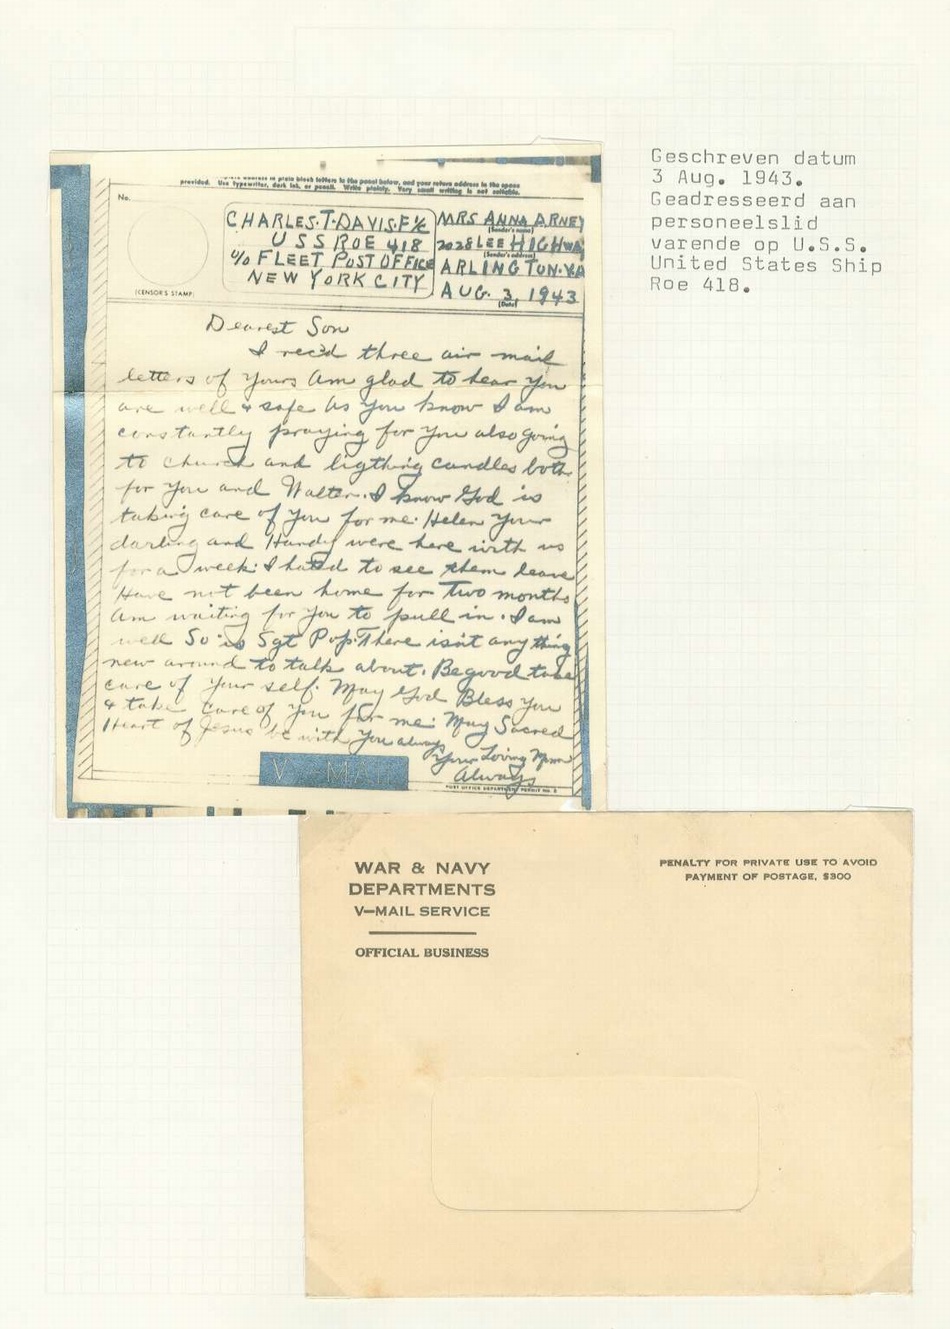 Geschreven datum
3 Aug. 1943.
Geadresseerd aan
personeelslid
varende op U.S.S.
United States Ship
Roe 418.
address in plain block letters in the panel below, and your return address in the space
provided. Use typewriter, dark ink, or pencil. Write plainly. Very small writing is not suitable.
No.
(CENSOR'S STAMP)
CHARLES.T.DAVIS.F 1/c
U S S ROE 418
c/o FLEET POST OFFICE
NEW YORK CITY
MRS ANNA ARNEY
(Sender's name)
2028 LEE HIGHWAY
(Sender's address)
ARLINGTON.VA
AUG. 3, 1943
(Date)
Dearest Son
I rec'd three air mail
letters of yours Am glad to hear you
are well & safe As you know I am
constantly praying for you also going
to church and ligthing candles both
for you and Walter. I know God is
taking care of you for me. Helen your
darling and Handy were here with us
for a week. I hated to see them leave
Have not been home for two months
Am waiting for you to pull in. I am
well So is Sgt Pop. There isn't any thing
new around to talk about. Be good take
care of your self. May God Bless you
& take care of you for me. May Sacred
Heart of Jesus be with you always
Your Loving Mom
Always
V-MAIL
POST OFFICE DEPARTMENT PERMIT NO.
WAR & NAVY
DEPARTMENTS
V—MAIL SERVICE
OFFICIAL BUSINESS
PENALTY FOR PRIVATE USE TO AVOID
PAYMENT OF POSTAGE, $300